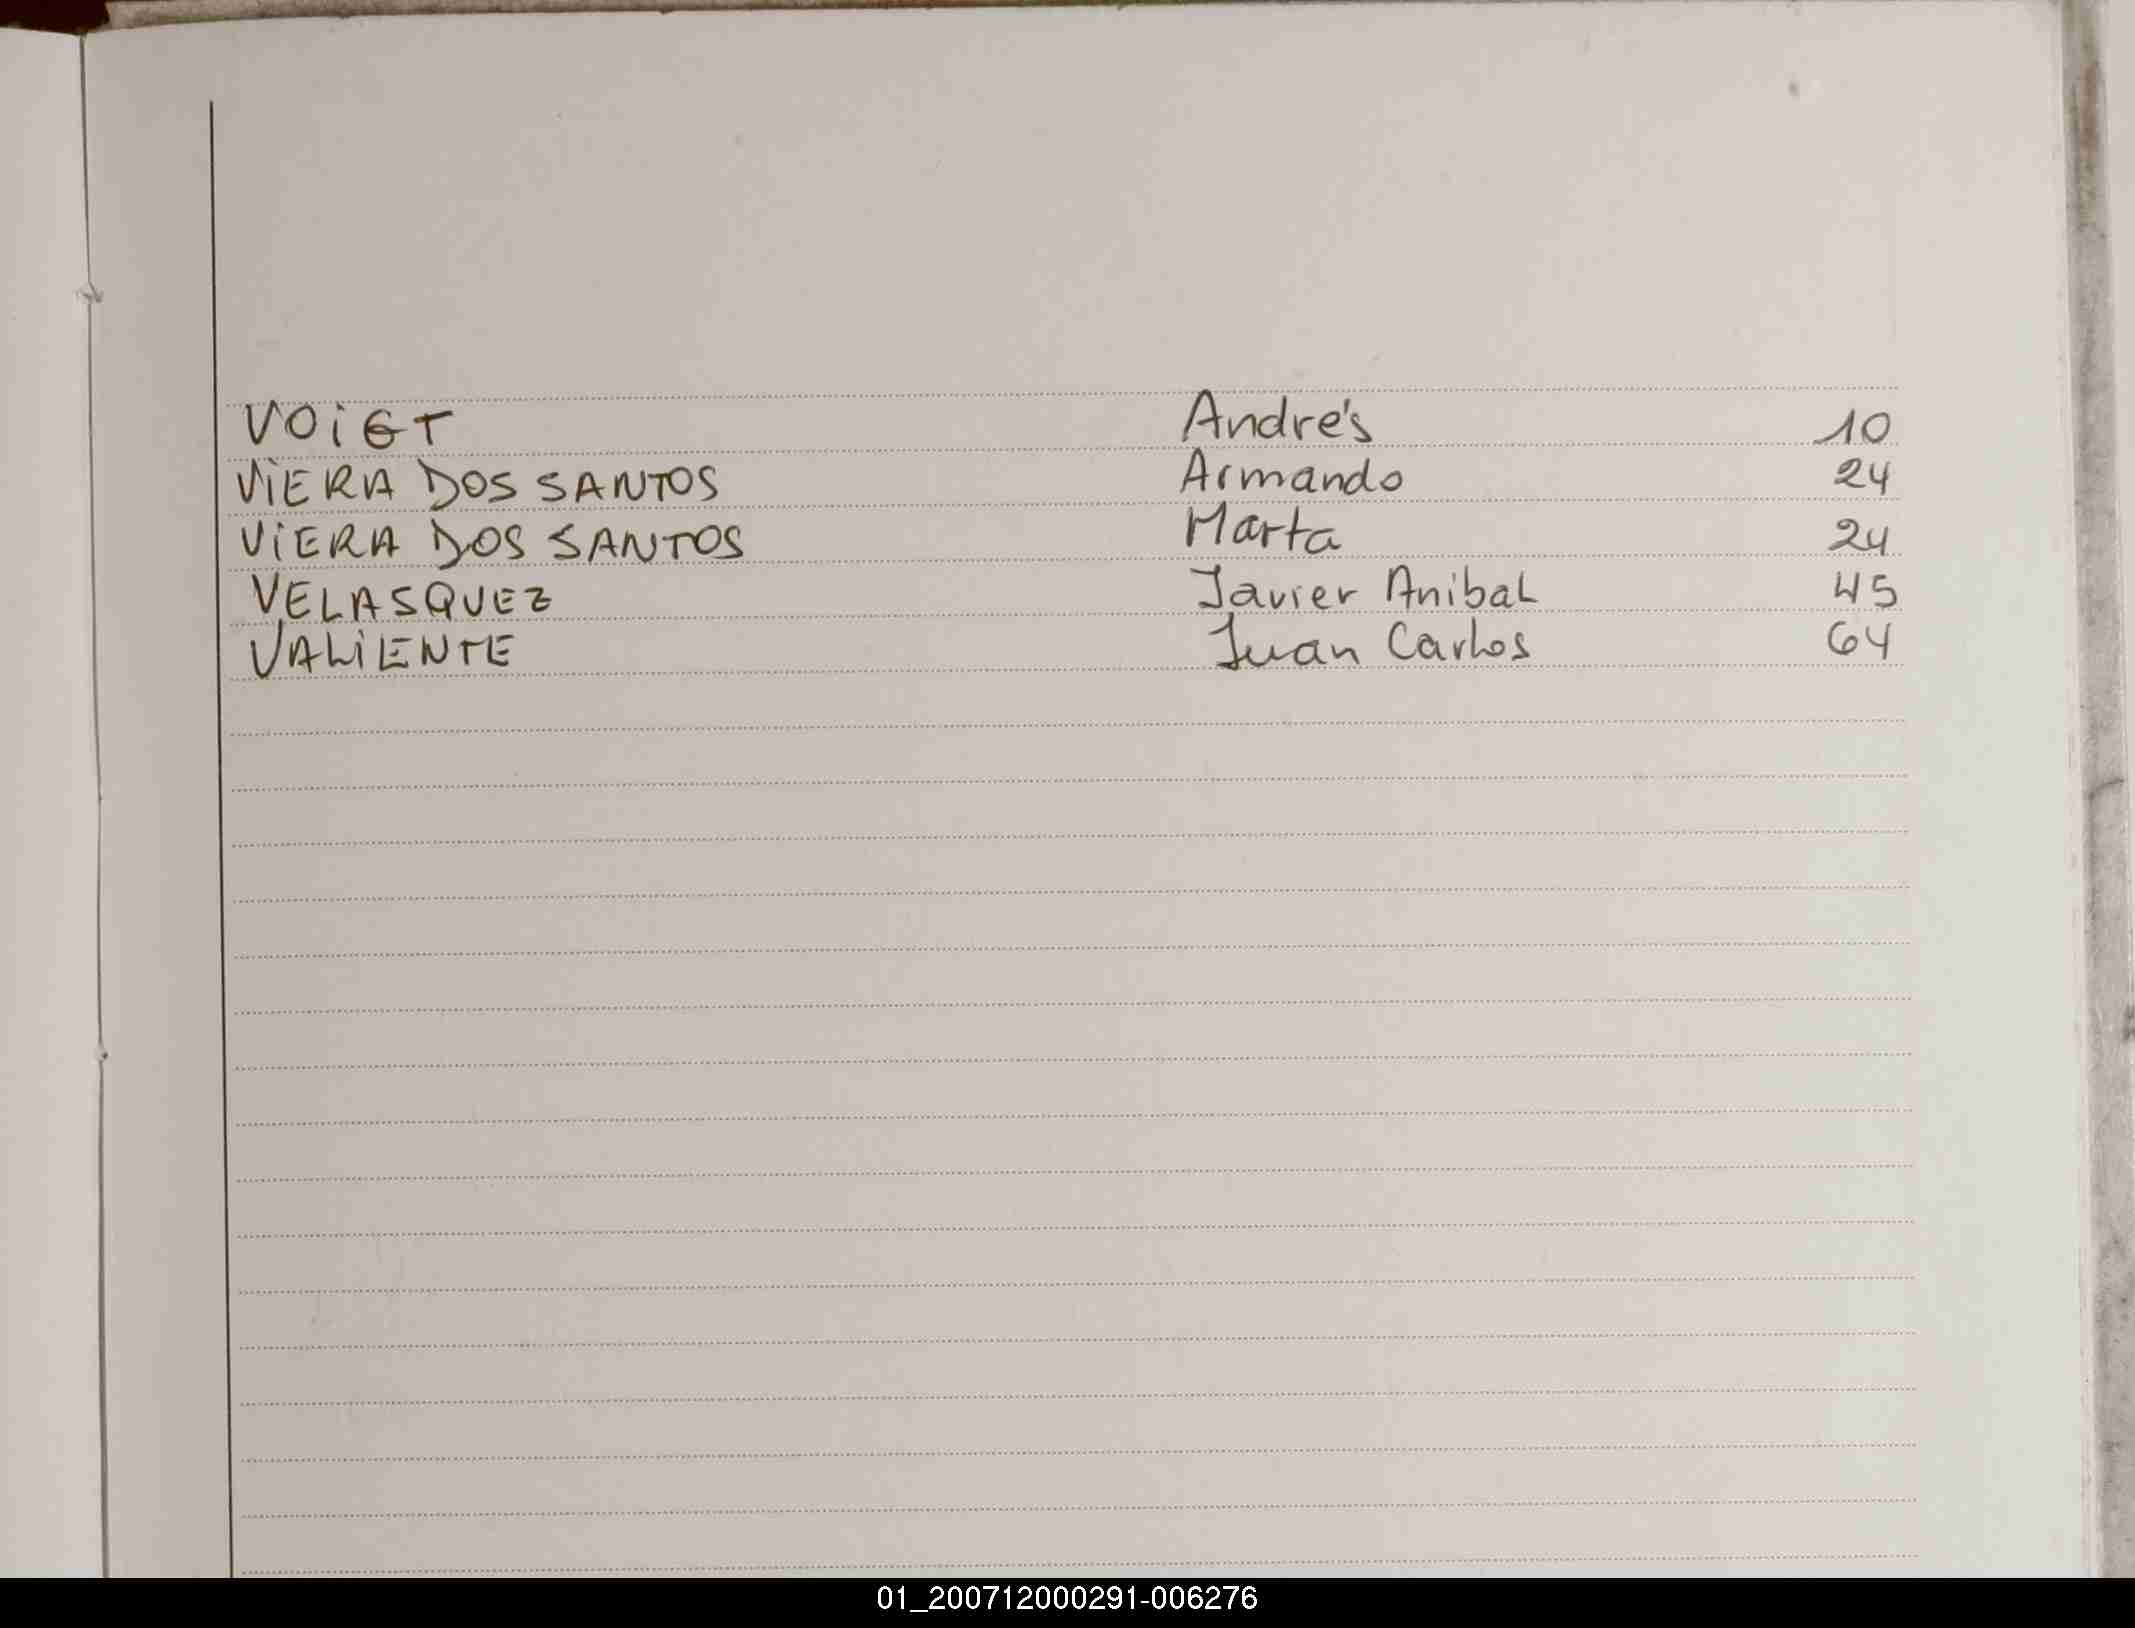 VOIGT Andrés 10
VIERA DOS SANTOS Armando 24
VIERA DOS SANTOS Marta 24
VELASQUEZ Javier Anibal 45
VALIENTE Juan Carlos 64
01_200712000291-006276